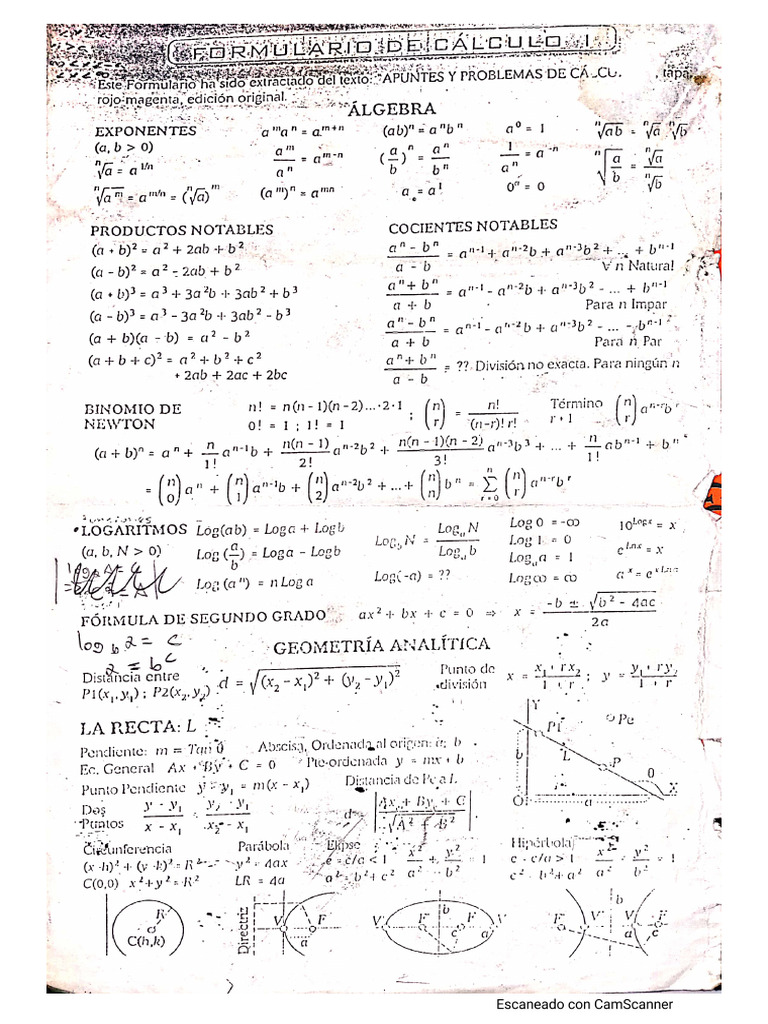 FORMULARIO DE CÁLCULO I
Este Formulario ha sido extractado del texto: APUNTES Y PROBLEMAS DE CÁLCU. , tapa
rojo magenta, edición original.
ÁLGEBRA
EXPONENTES
(a, b > 0)
ⁿ√a = a^(1/n)
ⁿ√(a^m) = a^(m/n) = (ⁿ√a)^m
a^m a^n = a^(m+n)
a^m / a^n = a^(m-n)
(a^m)^n = a^(mn)
(ab)^n = a^n b^n
(a/b)^n = a^n / b^n
a = a^1
a^0 = 1
1/a^n = a^(-n)
0^n = 0
ⁿ√(ab) = ⁿ√a ⁿ√b
ⁿ√(a/b) = ⁿ√a / ⁿ√b
PRODUCTOS NOTABLES
(a + b)² = a² + 2ab + b²
(a - b)² = a² - 2ab + b²
(a + b)³ = a³ + 3a²b + 3ab² + b³
(a - b)³ = a³ - 3a²b + 3ab² - b³
(a + b)(a - b) = a² - b²
(a + b + c)² = a² + b² + c²
+ 2ab + 2ac + 2bc
COCIENTES NOTABLES
(a^n - b^n)/(a - b) = a^(n-1) + a^(n-2)b + a^(n-3)b² + ... + b^(n-1)
∀ n Natural
(a^n + b^n)/(a + b) = a^(n-1) - a^(n-2)b + a^(n-3)b² - ... + b^(n-1)
Para n Impar
(a^n - b^n)/(a + b) = a^(n-1) - a^(n-2)b + a^(n-3)b² - ... - b^(n-1)
Para n Par
(a^n + b^n)/(a - b) = ?? División no exacta. Para ningún n
BINOMIO DE
NEWTON
n! = n(n - 1)(n - 2)....2·1
0! = 1 ; 1! = 1
; (n r) = n!/((n-r)! r!)
Término
r + 1
(n r) a^(n-r) b^r
(a + b)^n = a^n + n/1! a^(n-1)b + n(n - 1)/2! a^(n-2)b² + n(n - 1)(n - 2)/3! a^(n-3)b³ + ... + n/1! ab^(n-1) + b^n
= (n 0) a^n + (n 1) a^(n-1)b + (n 2) a^(n-2)b² + ... + (n n) b^n = Σ r=0 n (n r) a^(n-r) b^r
LOGARITMOS
(a, b, N > 0)
Log(ab) = Log a + Log b
Log (a/b) = Log a - Log b
Log (a^n) = n Log a
Log_b N = Log_a N / Log_a b
Log(-a) = ??
Log 0 = -∞
Log 1 = 0
Log_a a = 1
Log ∞ = ∞
10^(Log x) = x
e^(Ln x) = x
a^x = e^(x Ln a)
FÓRMULA DE SEGUNDO GRADO
ax² + bx + c = 0 ⇒ x = (-b ± √(b² - 4ac))/2a
log_b 2 = c
2 = b^c
GEOMETRÍA ANALÍTICA
Distancia entre
P1(x₁,y₁) ; P2(x₂,y₂)
d = √((x₂ - x₁)² + (y₂ - y₁)²)
Punto de
división
x = (x₁ + rx₂)/(1 + r) ; y = (y₁ + ry₂)/(1 + r)
LA RECTA: L
Pendiente: m = Tan θ
Abscisa, Ordenada al origen: a; b
Ec. General Ax + By + C = 0
Pte-ordenada y = mx + b
Punto Pendiente y - y₁ = m(x - x₁)
Distancia de Pe a L
Dos
Puntos
(y - y₁)/(x - x₁) = (y₂ - y₁)/(x₂ - x₁)
d = |(Ax + By + C)/√(A² + B²)|
Y
P1
Pe
L
P
b
θ
O
a
X
Circunferencia
(x - h)² + (y - k)² = R²
C(0,0) x² + y² = R²
Parábola
y² = 4ax
LR = 4a
Elipse
e = c/a < 1
a² = b² + c²
x²/a² + y²/b² = 1
Hipérbola
e = c/a > 1
c² = b² + a²
x²/a² - y²/b² = 1
R
C(h,k)
Directriz
V
F
a
V'
F'
b
c
a
F
V
F'
V'
b
V
F
a
c
Escaneado con CamScanner